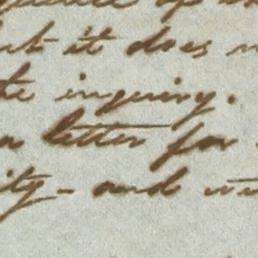 but it does
te inquiry.
a letter for
ity - and